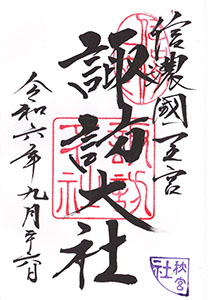 信濃國一之宮
諏訪大社
令和六年九月二十六日
秋宮
社